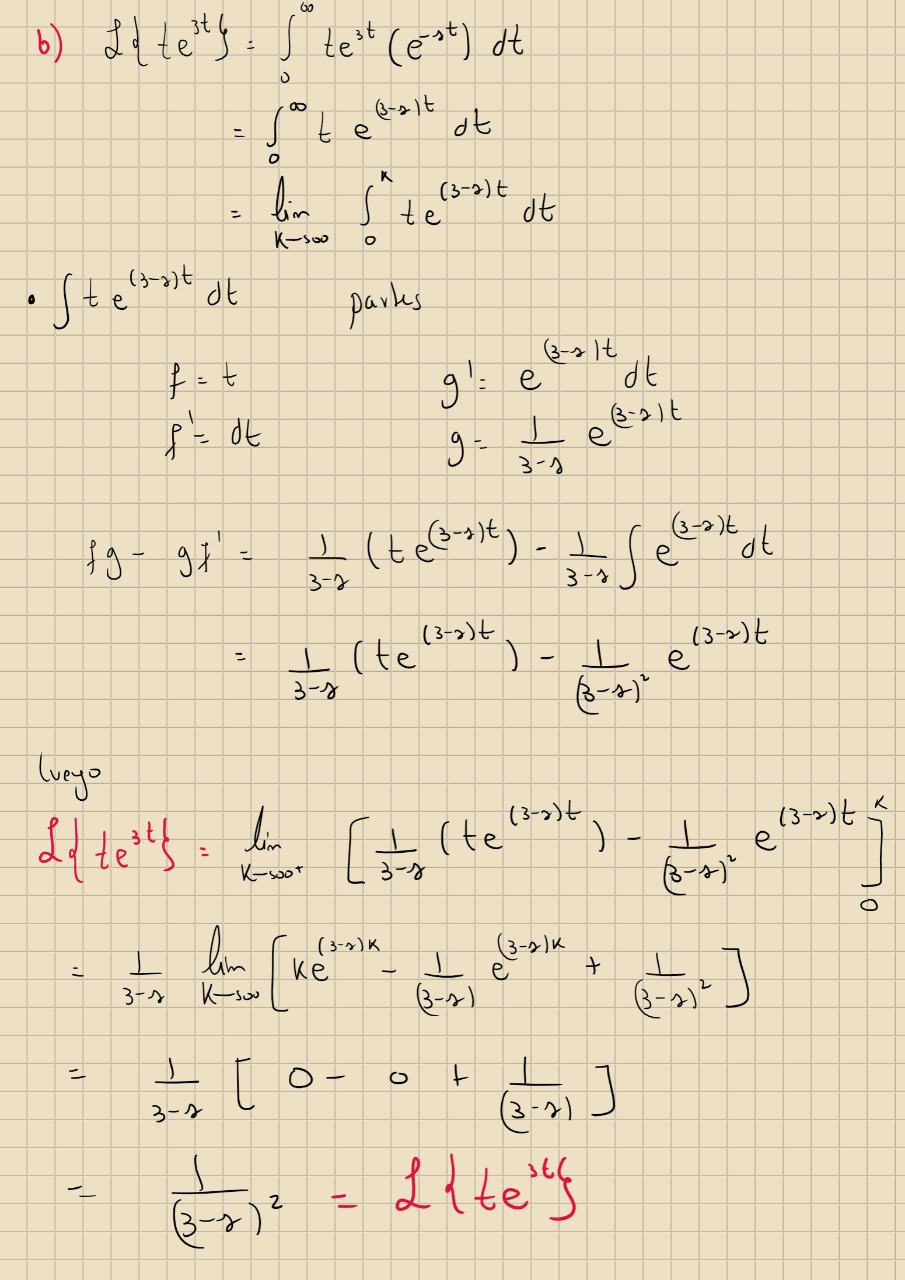 b) ℒ{te^{3t}} = ∫_0^∞ te^{3t} (e^{-st}) dt
= ∫_0^∞ t e^{(3-s)t} dt
= lim_{K→∞} ∫_0^K te^{(3-s)t} dt
• ∫ t e^{(3-s)t} dt partes
f = t g' = e^{(3-s)t} dt
f' = dt g = \frac{1}{3-s} e^{(3-s)t}
fg - gf' = \frac{1}{3-s} (te^{(3-s)t}) - \frac{1}{3-s} ∫ e^{(3-s)t} dt
= \frac{1}{3-s} (te^{(3-s)t}) - \frac{1}{(3-s)^2} e^{(3-s)t}
luego
ℒ{te^{3t}} = lim_{K→∞^+} [\frac{1}{3-s} (te^{(3-s)t}) - \frac{1}{(3-s)^2} e^{(3-s)t}]_0^K
= \frac{1}{3-s} lim_{K→∞} [Ke^{(3-s)K} - \frac{1}{(3-s)} e^{(3-s)K} + \frac{1}{(3-s)^2}]
= \frac{1}{3-s} [0 - 0 + \frac{1}{(3-s)}]
= \frac{1}{(3-s)^2} = ℒ{te^{3t}}